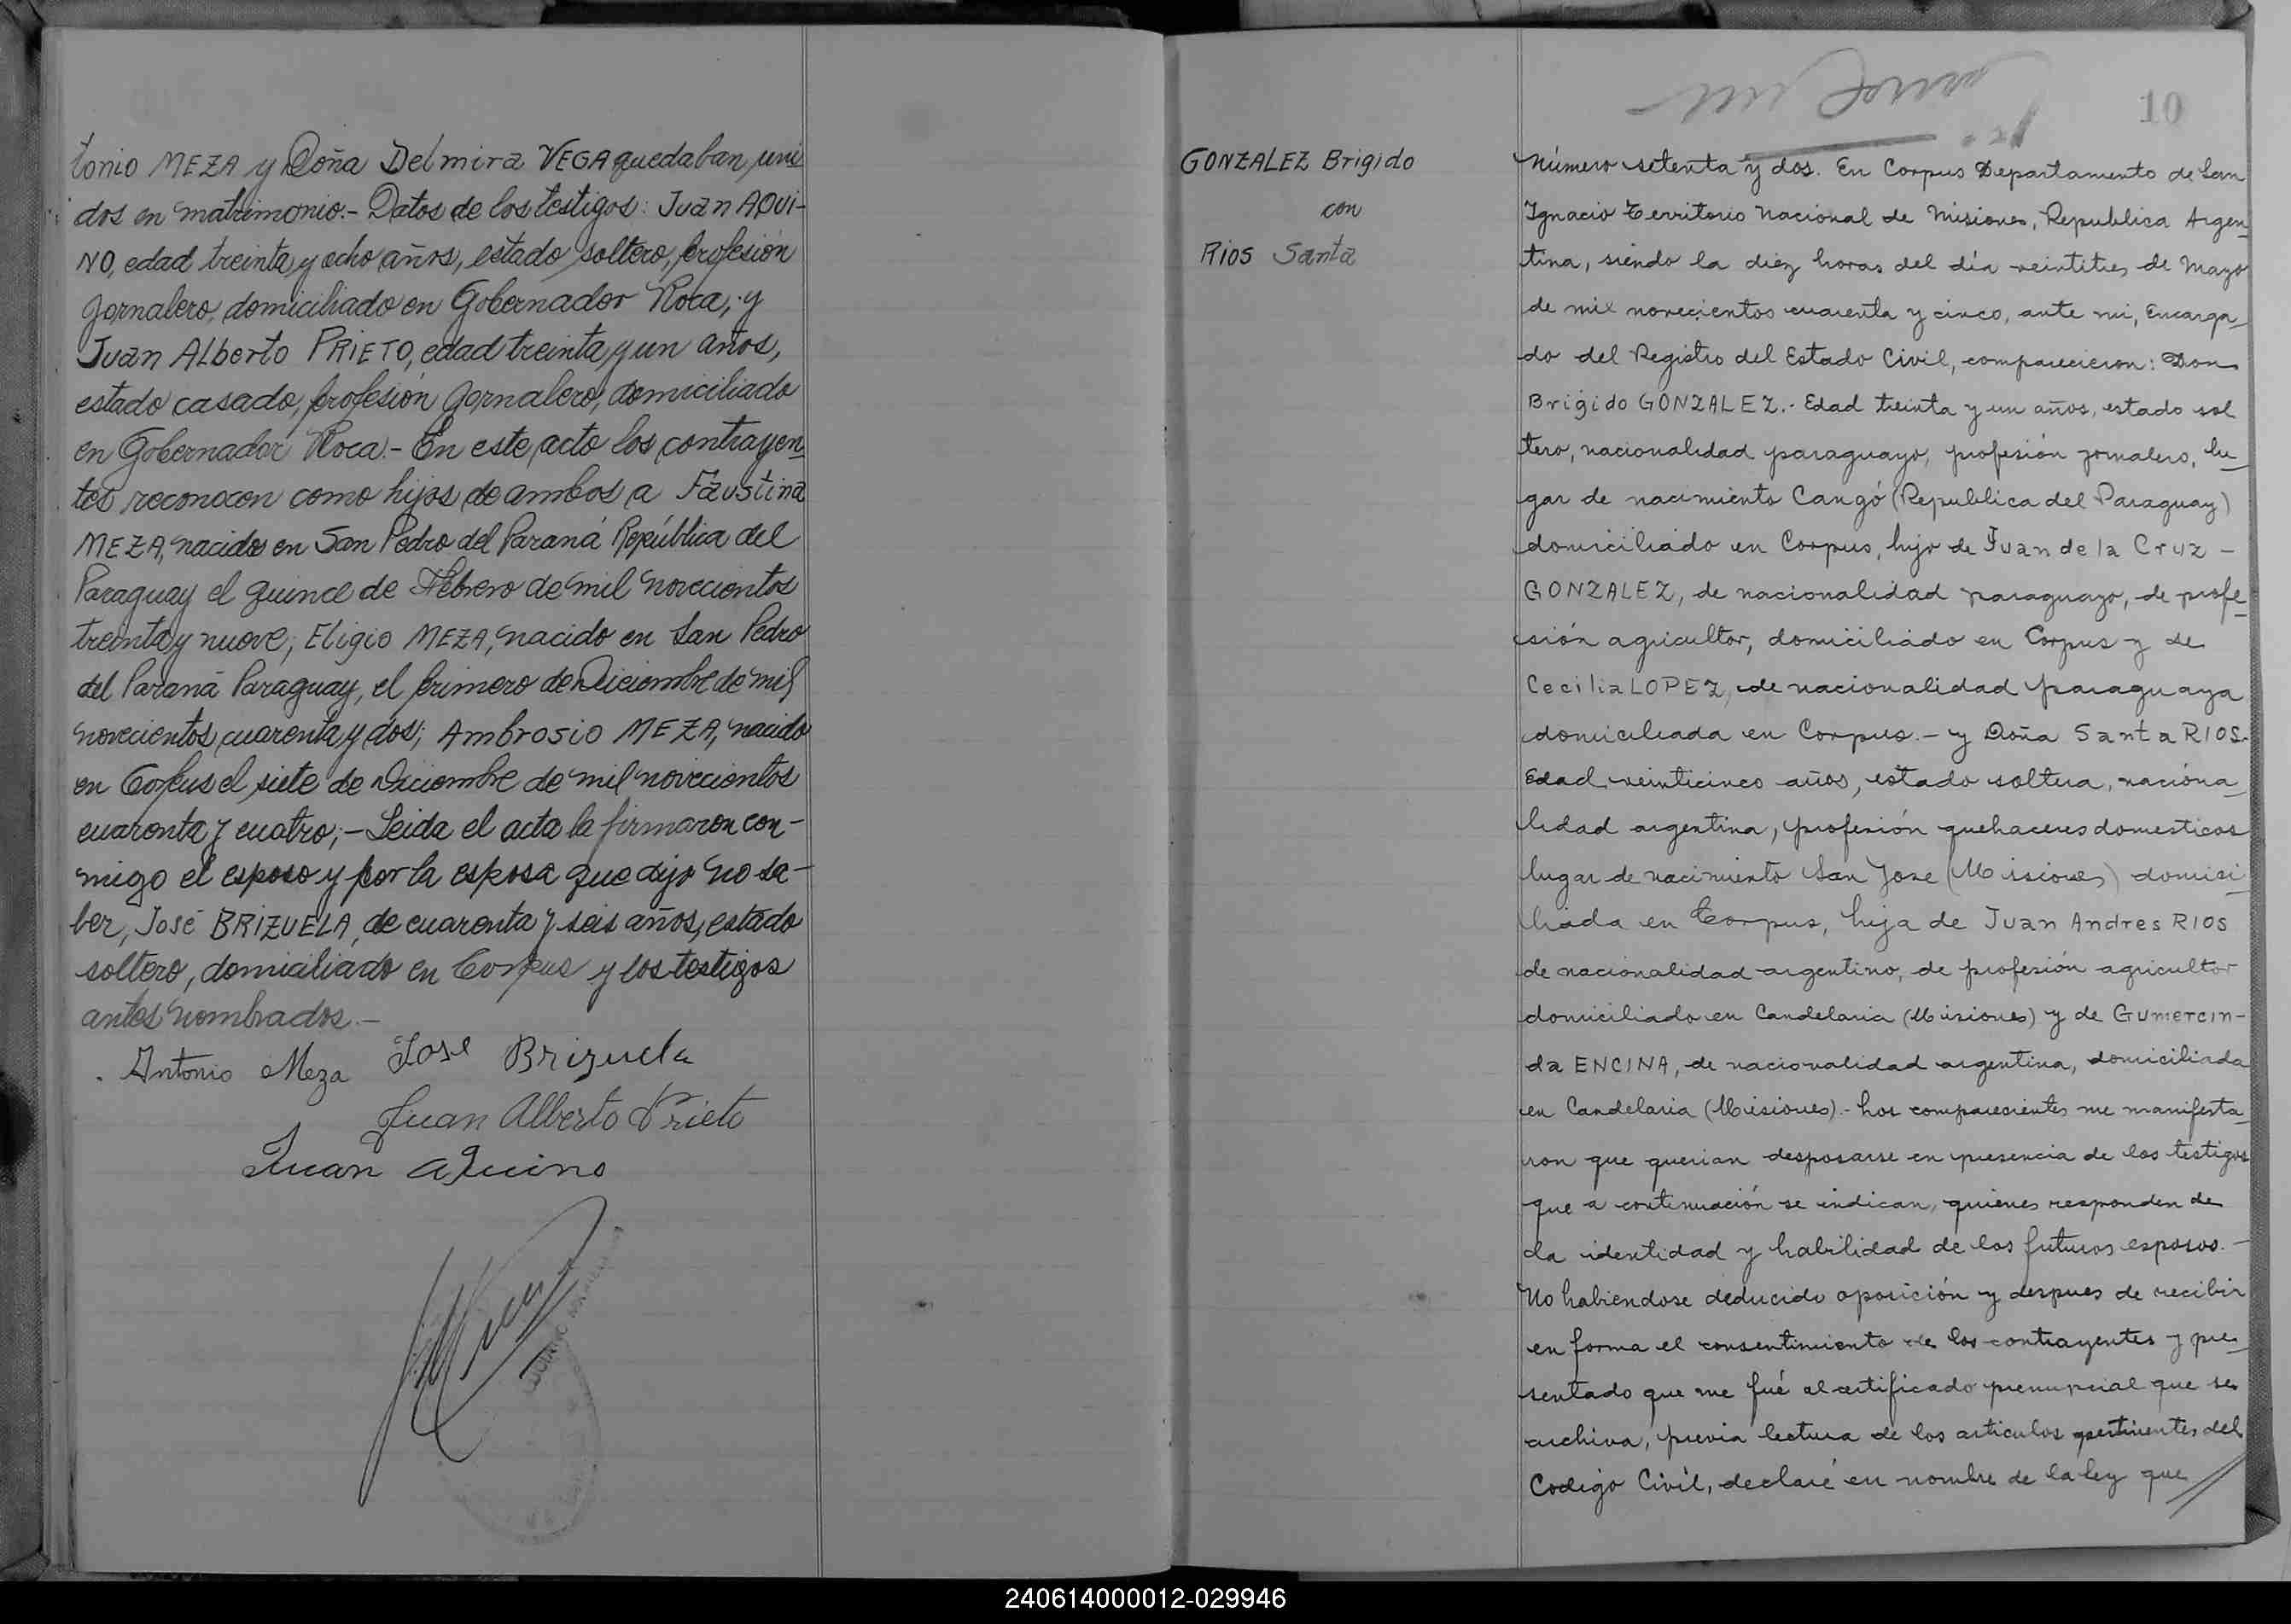 tonio MEZA y Doña Delmira VEGA quedaban uni
dos en matrimonio.- Datos de los testigos: Juan AQUI-
NO, edad treinta y ocho años, estado soltero, profesión
Jornalero, domiciliado en Gobernador Roca, y
Juan Alberto PRIETO, edad treinta y un años,
estado casado, profesión Jornalero, domiciliado
en Gobernador Roca.- En este acto los contrayen
tes reconocen como hijos de ambos a Faustina
MEZA, nacidos en San Pedro del Paraná República del
Paraguay el quince de Febrero de mil novecientos
treinta y nueve; Eligio MEZA, nacido en San Pedro
del Paraná Paraguay, el primero de Diciembre de mil
novecientos cuarenta y dos; Ambrosio MEZA, nacido
en Corpus el siete de Diciembre de mil novecientos
cuarenta y cuatro;- Leida el acta la firmaron con-
migo el esposo y por la esposa que dijo no sa-
ber, José BRIZUELA, de cuarenta y seis años, estado
soltero, domiciliado en Corpus y los testigos
antes nombrados.-
Antonio Meza Jose Brizuela
Juan Alberto Prieto
Juan Aquino
10
GONZALEZ Brigido
con
RIOS Santa
Número setenta y dos. En Corpus Departamento de San
Ignacio Territorio Nacional de Misiones, Republica Argen
tina, siendo la diez horas del día veintitres de Mayo
de mil novecientos cuarenta y cinco, ante mi, Encarga
do del Registro del Estado Civil, comparecieron: Don
Brigido GONZALEZ.- Edad treinta y un años, estado sol
tero, nacionalidad paraguayo, profesión jornalero, lu
gar de nacimiento Cangó (Republica del Paraguay)
domiciliado en Corpus, hijo de Juan de la Cruz -
GONZALEZ, de nacionalidad paraguayo, de profe
sión agricultor, domiciliado en Corpus y de
Cecilia LOPEZ, de nacionalidad paraguaya
domiciliada en Corpus.- y Doña Santa RIOS.
Edad veinticinco años, estado soltera, naciona
lidad argentina, profesión quehaceres domesticos
lugar de nacimiento San Jose (Misiones) domici
liada en Corpus, hija de Juan Andres RIOS
de nacionalidad argentino, de profesión agricultor
domiciliado en Candelaria (Misiones) y de Gumercin-
da ENCINA, de nacionalidad argentina, domiciliada
en Candelaria (Misiones).- Los comparecientes me manifesta
ron que querian desposarse en presencia de los testigos
que a continuación se indican, quienes responden de
la identidad y habilidad de los futuros esposos.-
No habiendose deducido oposición y despues de recibir
en forma el consentimiento de los contrayentes y pre
sentado que me fué el certificado prenupcial que se
archiva, previa lectura de los articulos pertinentes del
Codigo Civil, declaré en nombre de la ley que //
240614000012-029946